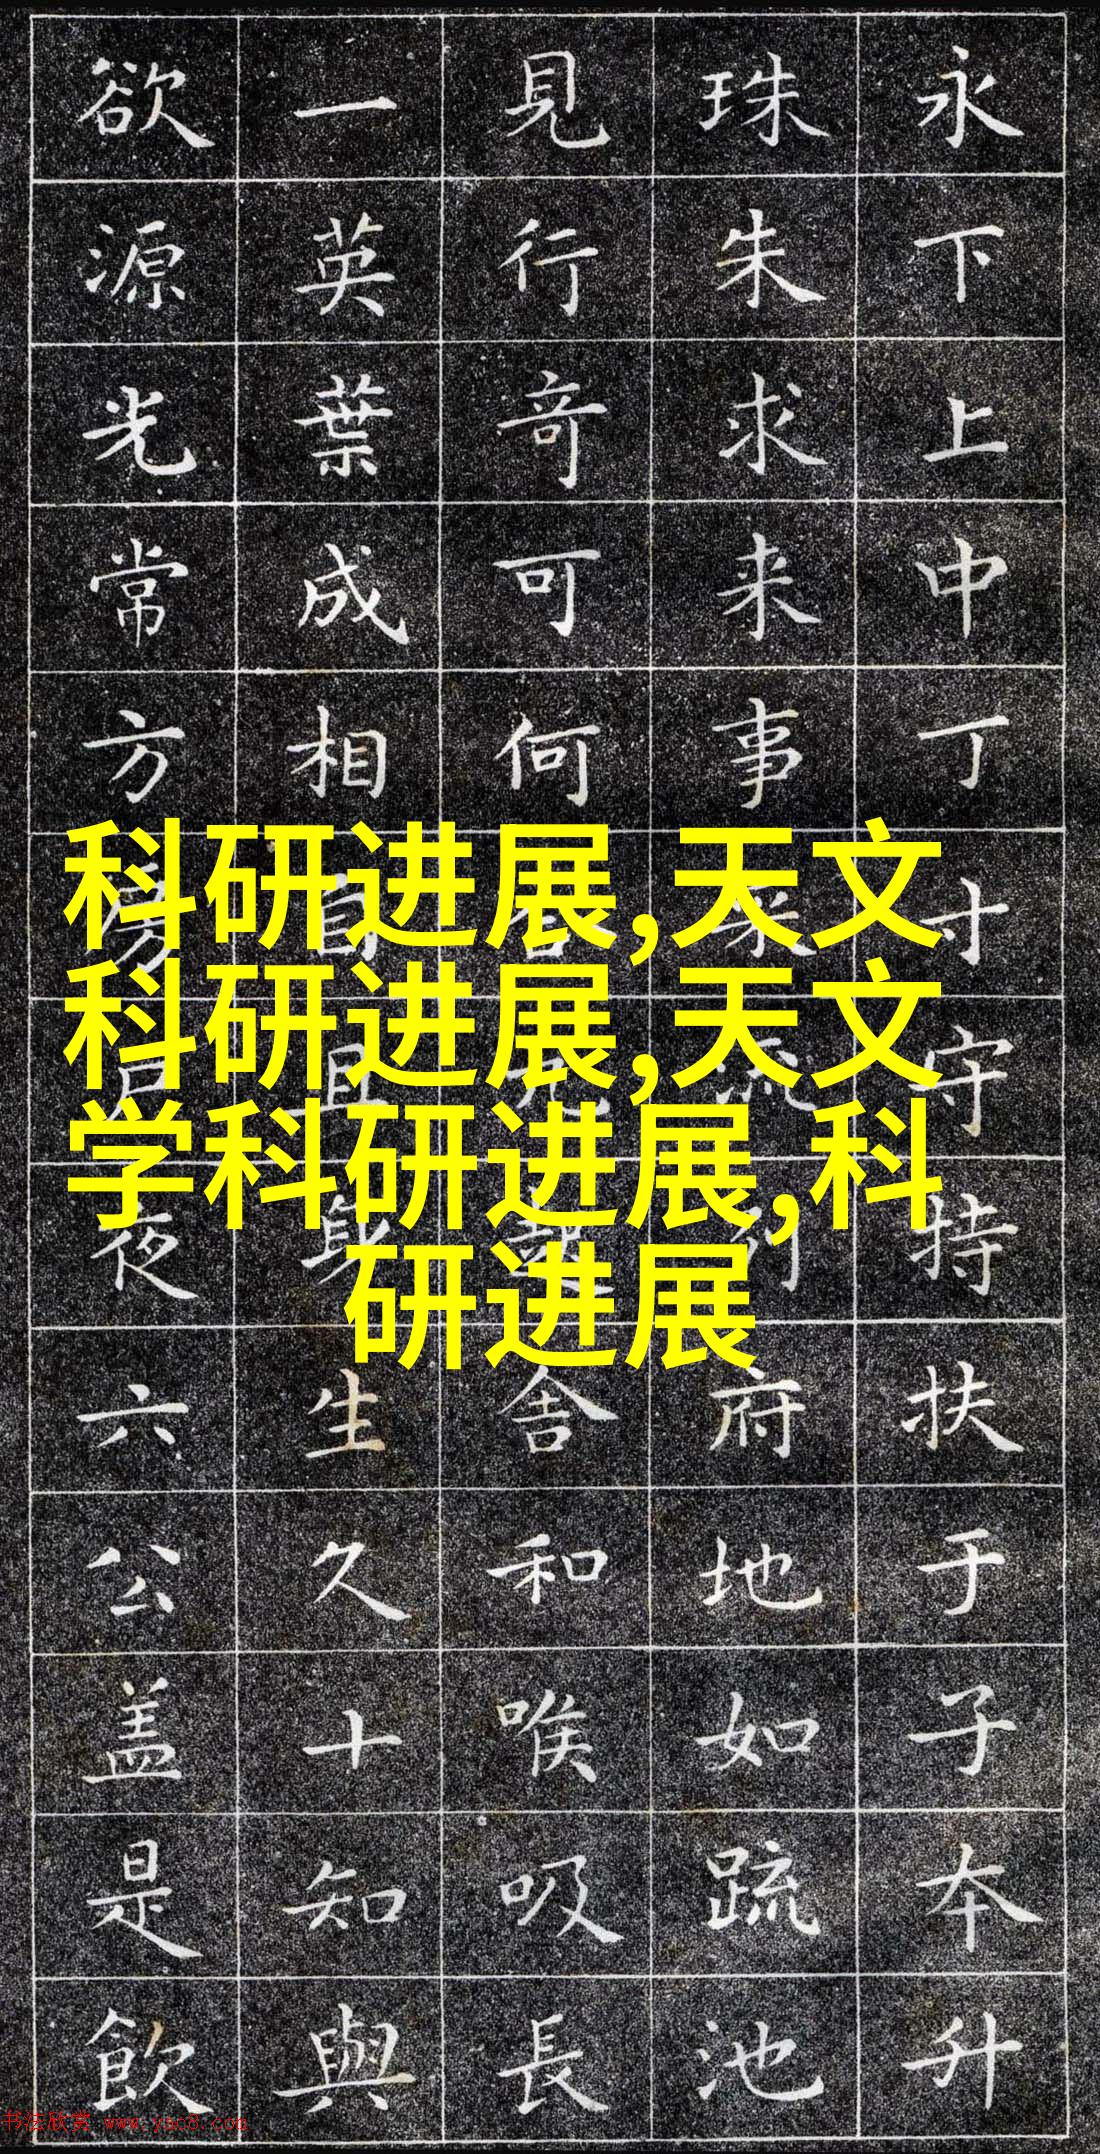 科研进展,天文
科研进展,天文
学科研进展,科
研进展
永下上中丁寸守持扶于子本升
珠朱求来事流府地如疏池
見行奇可何舍和喉吸長
一英葉成相自且身生久十知與
欲源光常方夜六公盖是飲
书法欣赏 www.yac8.com